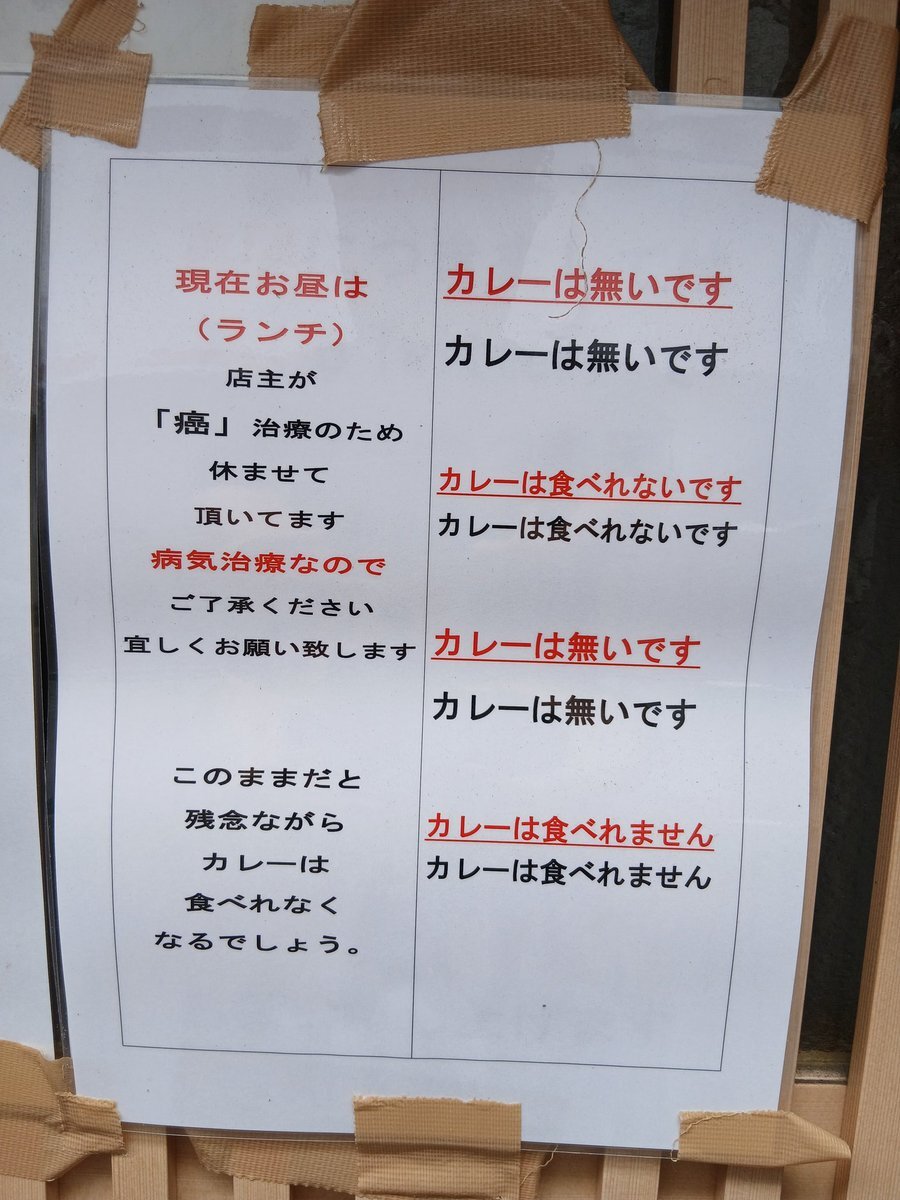 現在お昼は
（ランチ）
店主が
「癌」治療のため
休ませて
頂いてます
病気治療なので
ご了承ください
宜しくお願い致します
このままだと
残念ながら
カレーは
食べれなく
なるでしょう。
カレーは無いです
カレーは無いです
カレーは食べれないです
カレーは食べれないです
カレーは無いです
カレーは無いです
カレーは食べれません
カレーは食べれません